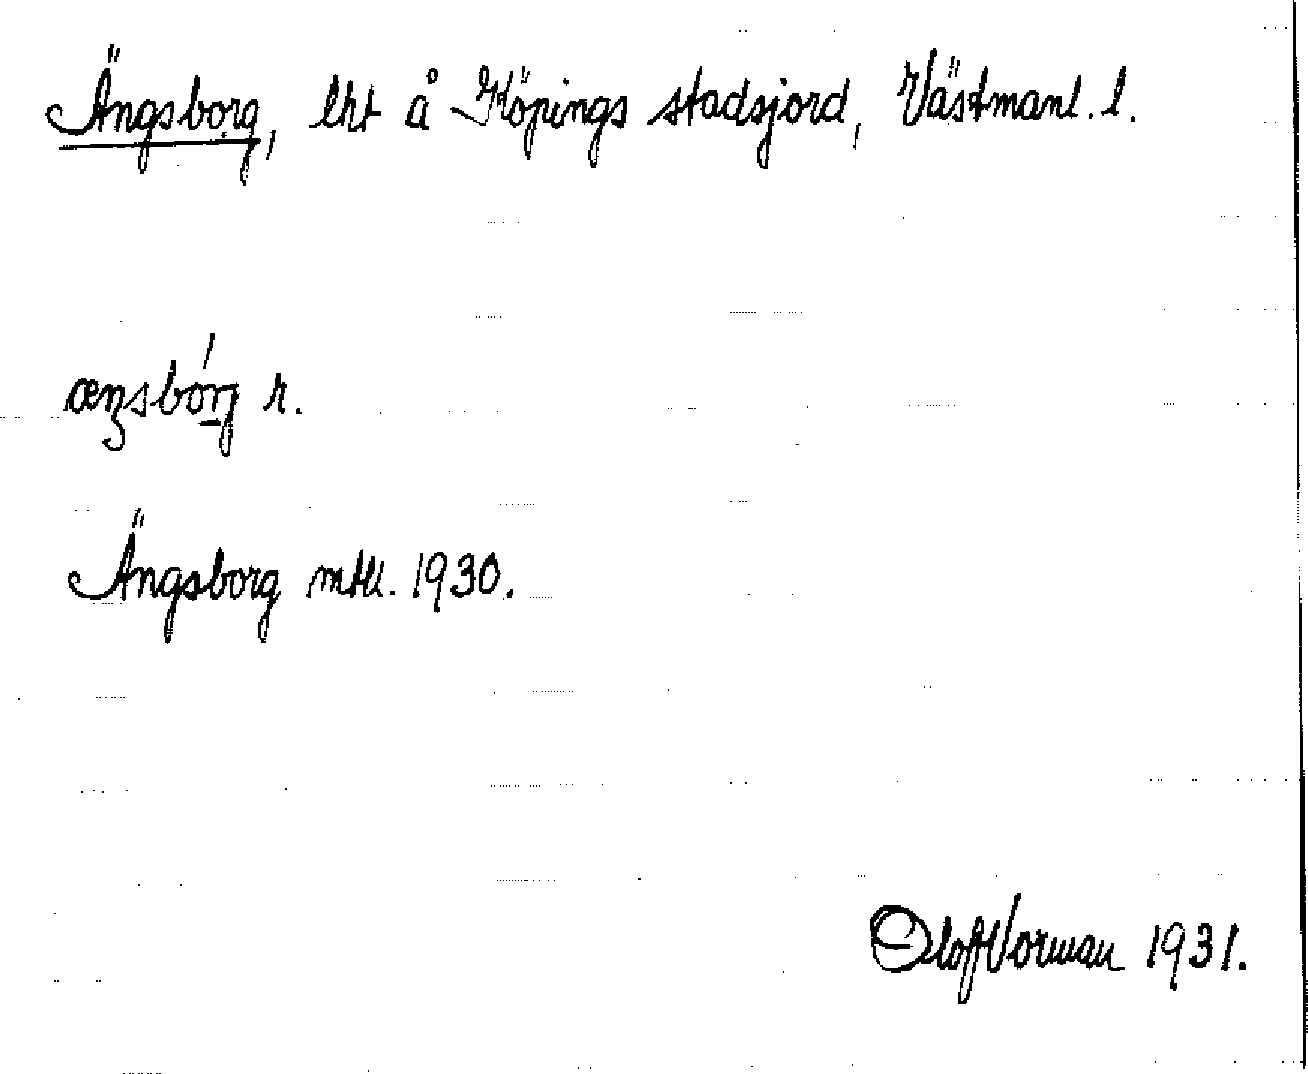 Ängsborg, lht å Köpings stadsjord, Västmanl. l.
r.
Ängsborg mtll. 1930.
Olof Norman 1931.